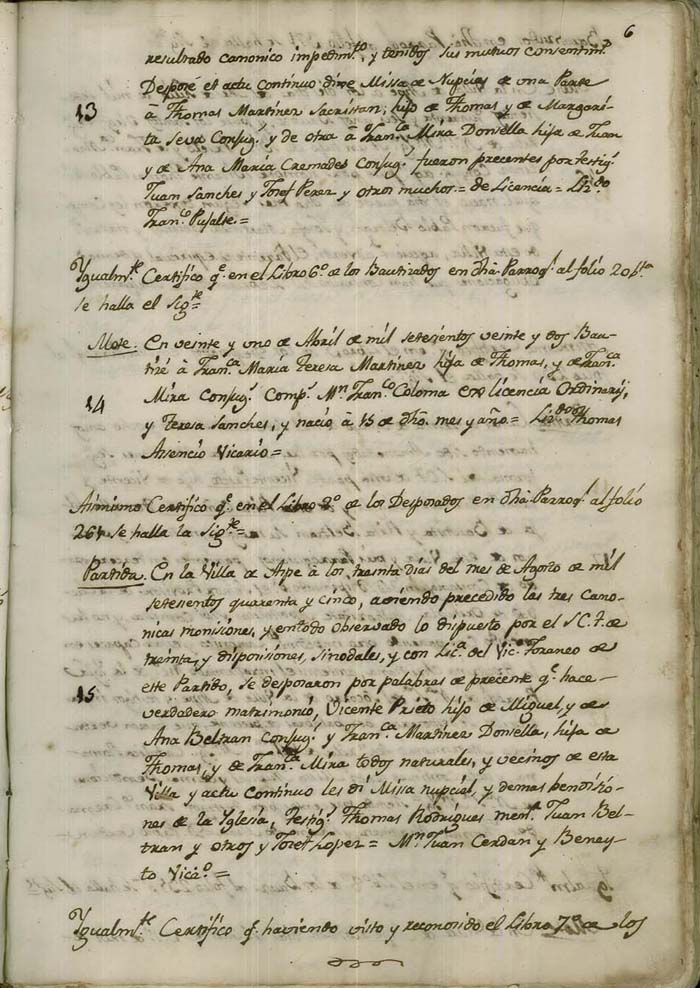 6
resultado canonico impedim.to, y tenidos sus mutuos consentim.s
Desposé et actu continuo dixe Missa de Nupcias de una Parte
13 à Thomas Martinez Sacristan, hijo de Thomas y de Margari-
ta Seva Conjug.s y de otra à Fran.ca Mira Donsella hija de Juan
y de Ana Maria Cremades Conjug.s fueron precentes por testig.s
Juan Sanches y Josef Perez y otros muchos = de Licencia = Liz.do
Fran.co Pujalte.=
Ygualm.te Certifico q.e en el Libro 6.o de los Bautizados en dha Parroq.l al folio 206
se halla el Sig.te
Mote. En veinte y uno de Abril de mil setesientos veinte y dos Bau-
tizé à Fran.ca Maria Teresa Martinez hija de Thomas, y de Fran.ca
14 Mira Conjug.s Comp.s M.n Fran.co Coloma en licencia Ordinarij,
y Teresa Sanches, y nació à 15 de dho. mes y año.= Liz.do Thomas
Asencio Vicario=
Asimismo Certifico q.e en el Libro 2.o de los Desposados en dha Parroq.l al folio
261 se halla la Sig.te=
Partida. En la Villa de Aspe à los treinta dias del mes de Agosto de mil
setesientos quarenta y cinco, aviendo precedido las tres Cano-
nicas monisiones, y en todo observado lo dispuesto por el S.C.T. de
treinta, y disposisiones, sinodales, y con Lic.a del Vic.o Foraneo de
15 este Partido, se desposaron por palabras de precente q.e hace-
verdadero matrimonio, Vicente Prieto hijo de Miguel, y de
Ana Beltran Conjug.s y Fran.ca Martinez Donsella, hija de
Thomas, y de Fran.ca Mira todos naturales, y vecinos de esta
Villa y actu continuo les di Missa nupcial, y demas bendisio-
nes de la Yglesia, testig.s Thomas Rodrigues men.r Juan Bel-
tran y otros y Josef Lopez = M.n Juan Cerdan y Beney-
to Vica.o =
Ygualm.te Certifico q.e haviendo visto y reconosido el Libro 7.o de los